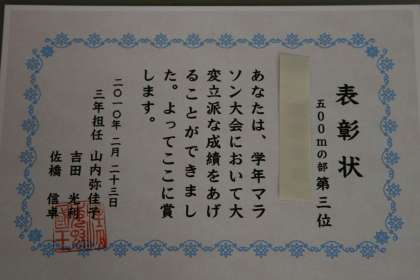 表彰状
五00mの部 第三位
あなたは、学年マラ
ソン大会において大
変立派な成績をあげ
ることができまし
た。よってここに賞
します。
二〇一〇年 二月 二十三日
三年担任 山内弥佳子
吉田 光利
佐橋 信卓